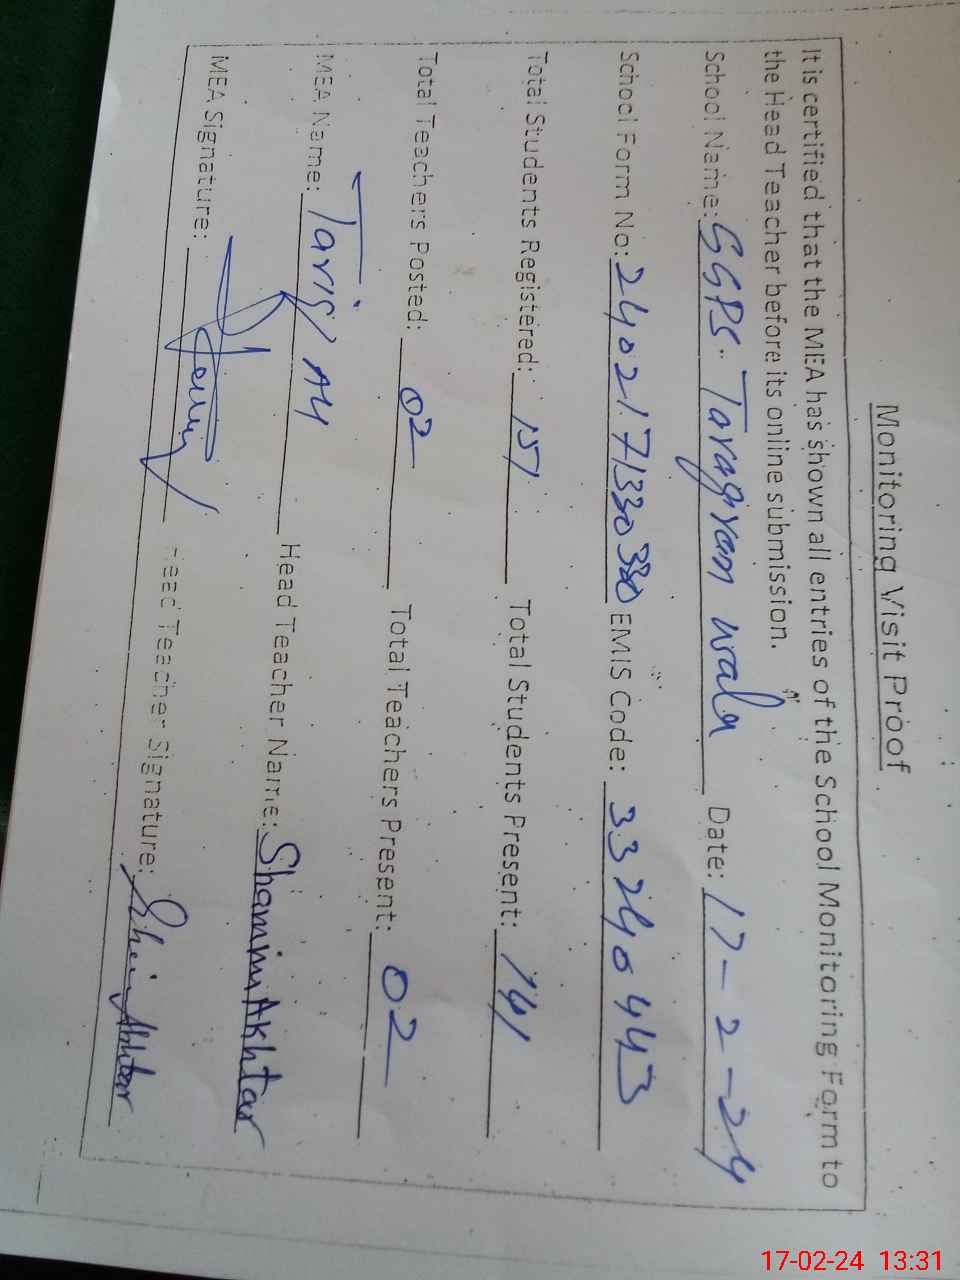 Monitoring Visit Proof
It is certified that the MEA has shown all entries of the School Monitoring Form to
the Head Teacher before its online submission.
School Name: GGPS. Taragran wala Date: 17-2-24
School Form No: 2402171330330 EMIS Code: 33240443
Total Students Registered: 151 Total Students Present: 141
Total Teachers Posted: 02 Total Teachers Present: 02
MEA Name: Head Teacher Name: Shamim Akhtar
MEA Signature: Head Teacher Signature: Akhtar
17-02-24 13:31